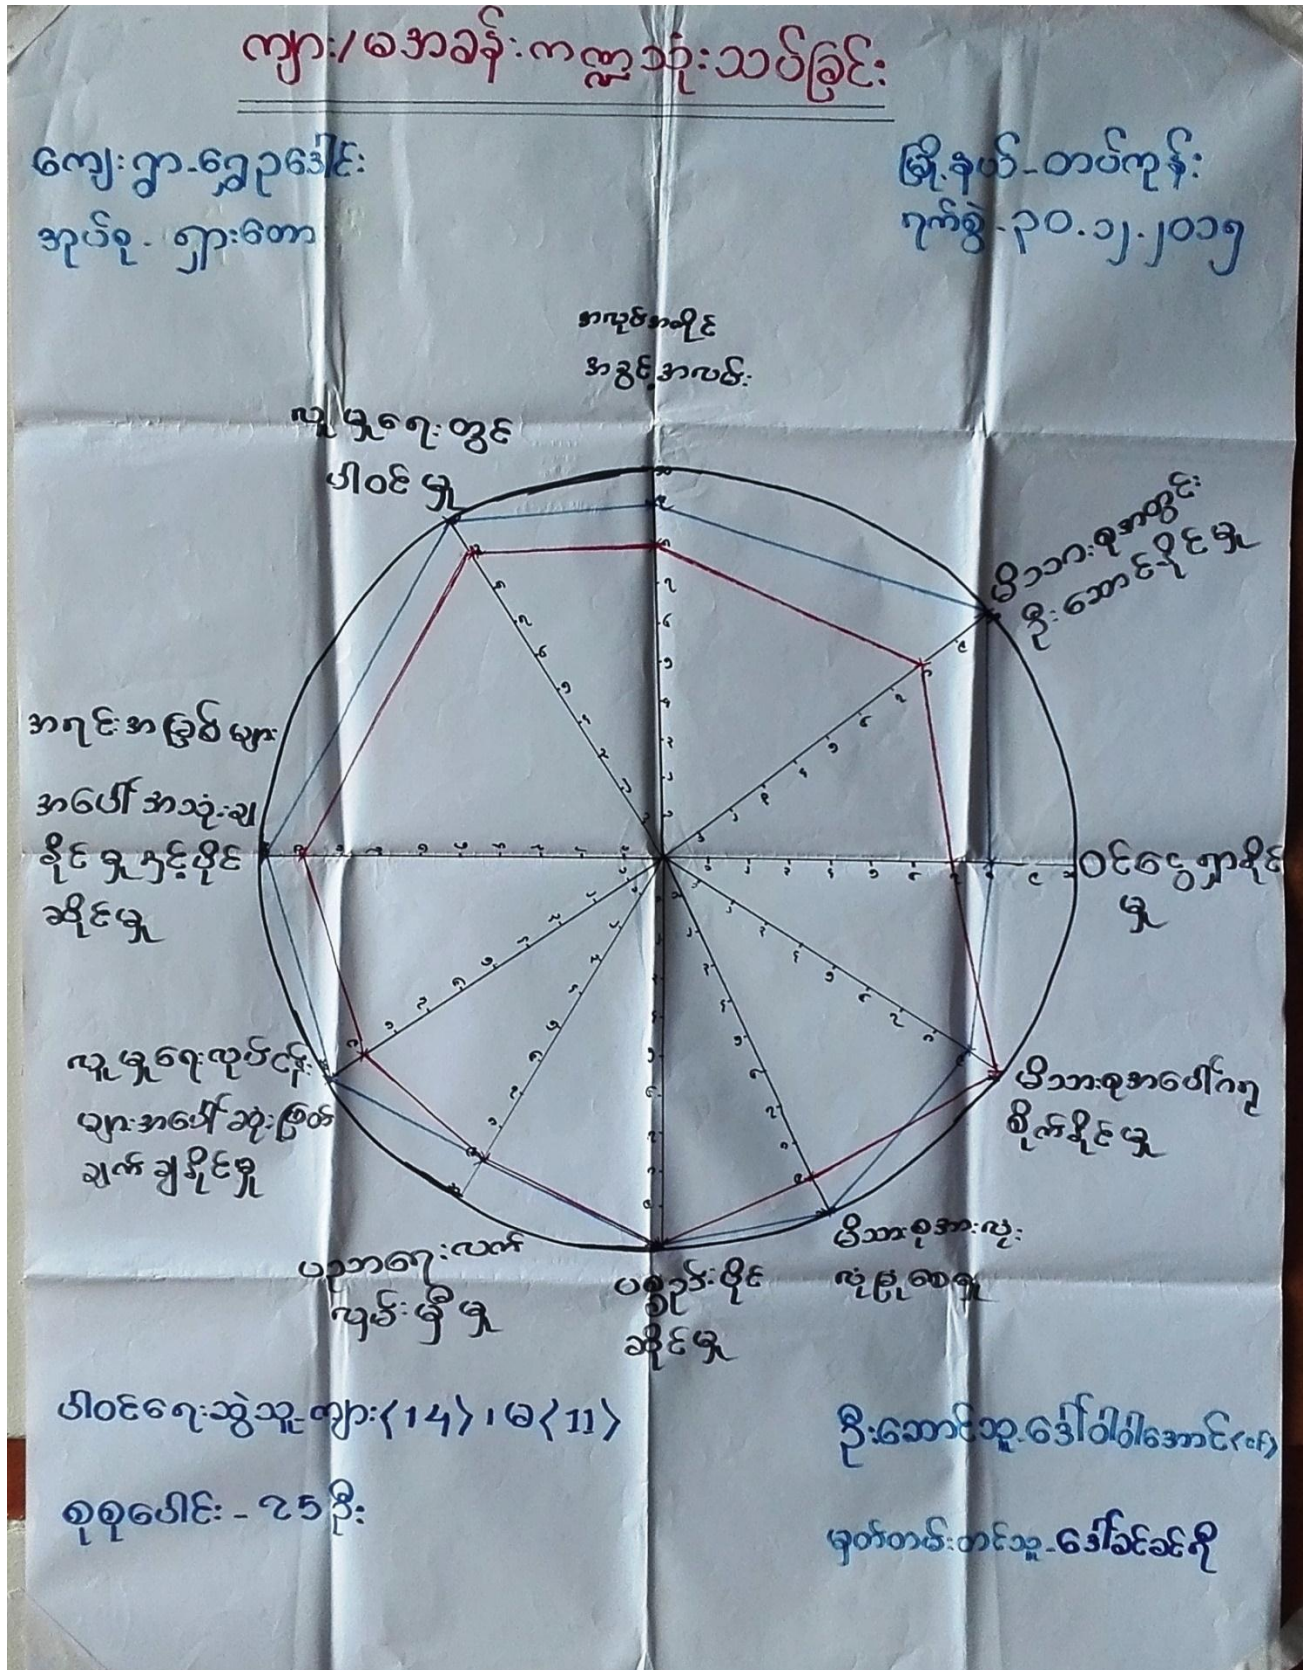 ကျား/မအခန်းကဏ္ဍသုံးသပ်ခြင်း
ကျေးရွာ-ရွှေဥဒေါင်း
မြို့နယ်-တပ်ကုန်း
အုပ်စု - ရှားတော
ရက်စွဲ-၃၀.၁၂.၂၀၁၅
အလုပ်အကိုင်
အခွင့်အလမ်း
လူမှုရေးတွင်
ပါဝင်မှု
မိသားစုအတွင်း
ဦးဆောင်နိုင်မှု
အရင်းအမြစ်များ
အပေါ်အသုံးချ
နိုင်မှုနှင့်ပိုင်
ဆိုင်မှု
ဝင်ငွေရှာနိုင်
မှု
လူမှုရေးလုပ်ငန်း
များအပေါ်ဆုံးဖြတ်
ချက်ချနိုင်မှု
မိသားစုအပေါ်ဂရု
စိုက်နိုင်မှု
ပညာရေးလက်
လှမ်းမှီမှု
ပစ္စည်းပိုင်
ဆိုင်မှု
မိသားစုအားလုံး
လုံခြုံစေမှု
ပါဝင်ဆွေးနွေးသူ-ကျား<14>၊မ<11>
ဦးဆောင်သူ-ဒေါ်ဝါဝါအောင်<CF>
စုစုပေါင်း - 25ဦး
မှတ်တမ်းတင်သူ-ဒေါ်ခင်ခင်ကို